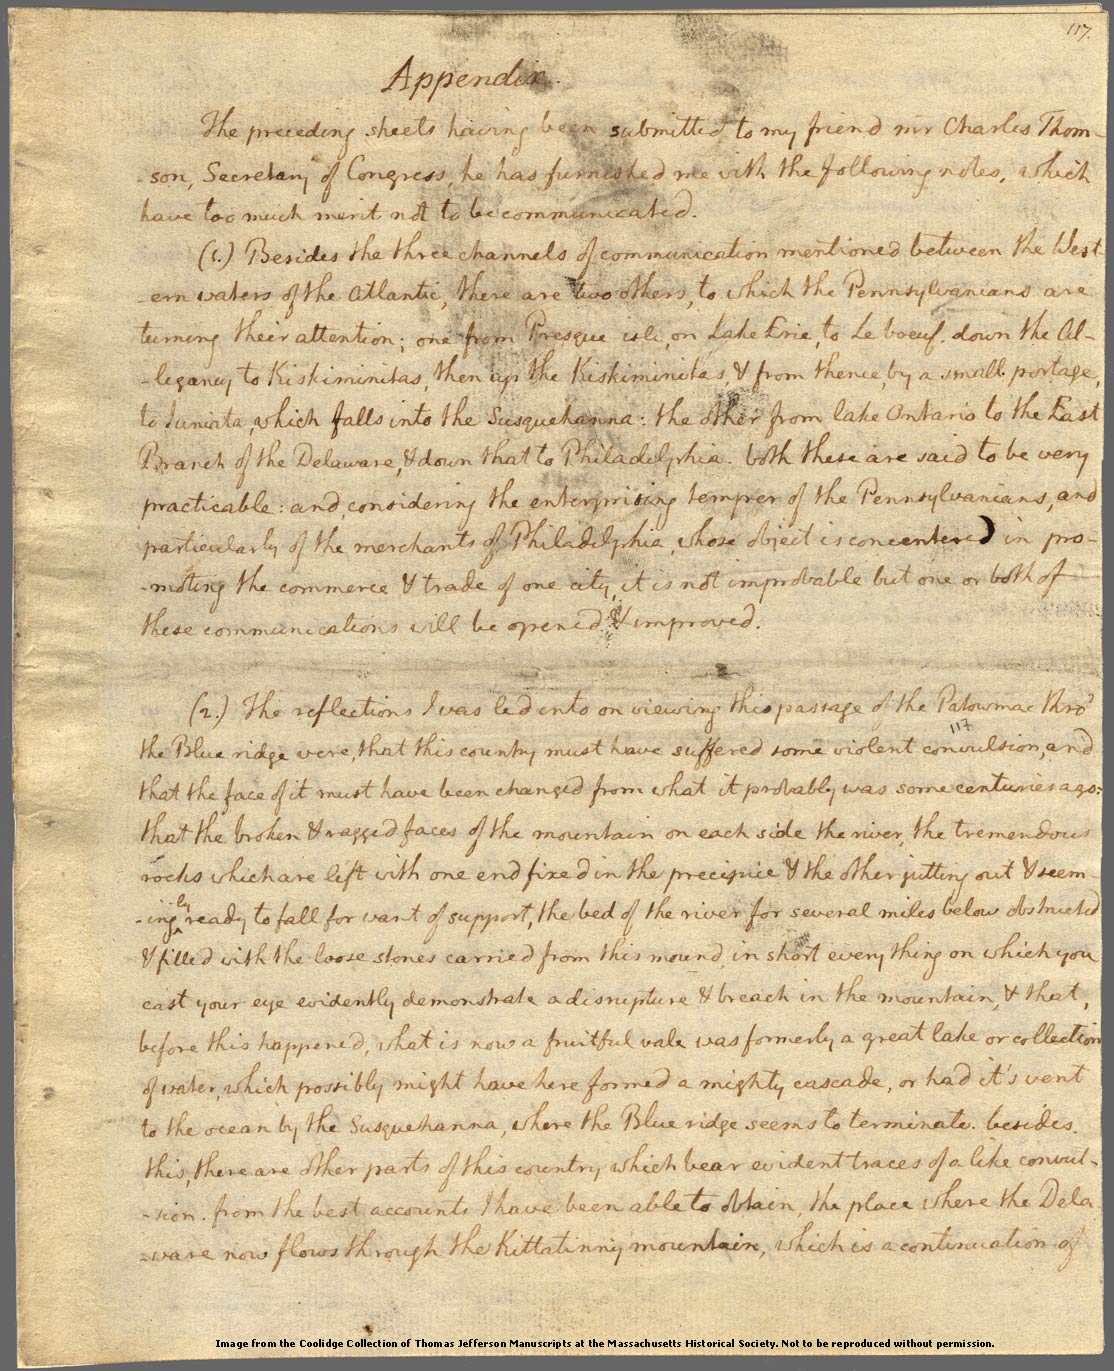 117.
Appendix.
The preceding sheets having been submitted to my friend mr Charles Thom-
-son, Secretary of Congress, he has furnished me with the following notes, which
have too much merit not to be communicated.
(1.) Besides the three channels of communication mentioned between the West-
-ern waters of the Atlantic, there are two others, to which the Pennsylvanians are
turning their attention; one from Presque isle, on Lake Erie, to Le boeuf. down the Al-
-legancy to Kiskiminitas, then up the Kiskiminitas, & from thence, by a small portage,
to Juniata, which falls into the Susquehanna: the other from lake Ontario to the East
Branch of the Delaware, & down that to Philadelphia. both these are said to be very
practicable: and, considering the enterprising temper of the Pennsylvanians, and
particularly of the merchants of Philadelphia, whose object is concentered in pro-
-moting the commerce & trade of one city, it is not improbable but one or both of
these communications will be opened & improved.
(2.) The reflections I was led into on viewing this passage of the Patowmac thro'
117
the Blue ridge were, that this country must have suffered some violent convulsion, and
that the face of it must have been changed from what it probably was some centuries ago:
that the broken & ragged faces of the mountain on each side the river, the tremendous
rocks which are left with one end fixed in the precipice & the other jutting out & seem-
-ingly ready to fall for want of support, the bed of the river for several miles below obstructed
& filled with the loose stones carried from this mound, in short every thing on which you
cast your eye evidently demonstrate a disrupture & breach in the mountain, & that,
before this happened, what is now a fruitful vale was formerly a great lake or collection
of water, which possibly might have here formed a mighty cascade, or had it's vent
to the ocean by the Susquehanna, where the Blue ridge seems to terminate. besides
this, there are other parts of this country which bear evident traces of a like convul-
-sion. from the best accounts I have been able to obtain, the place where the Dela-
-ware now flows through the Kittatinny mountain, which is a continuation of
Image from the Coolidge Collection of Thomas Jefferson Manuscripts at the Massachusetts Historical Society. Not to be reproduced without permission.